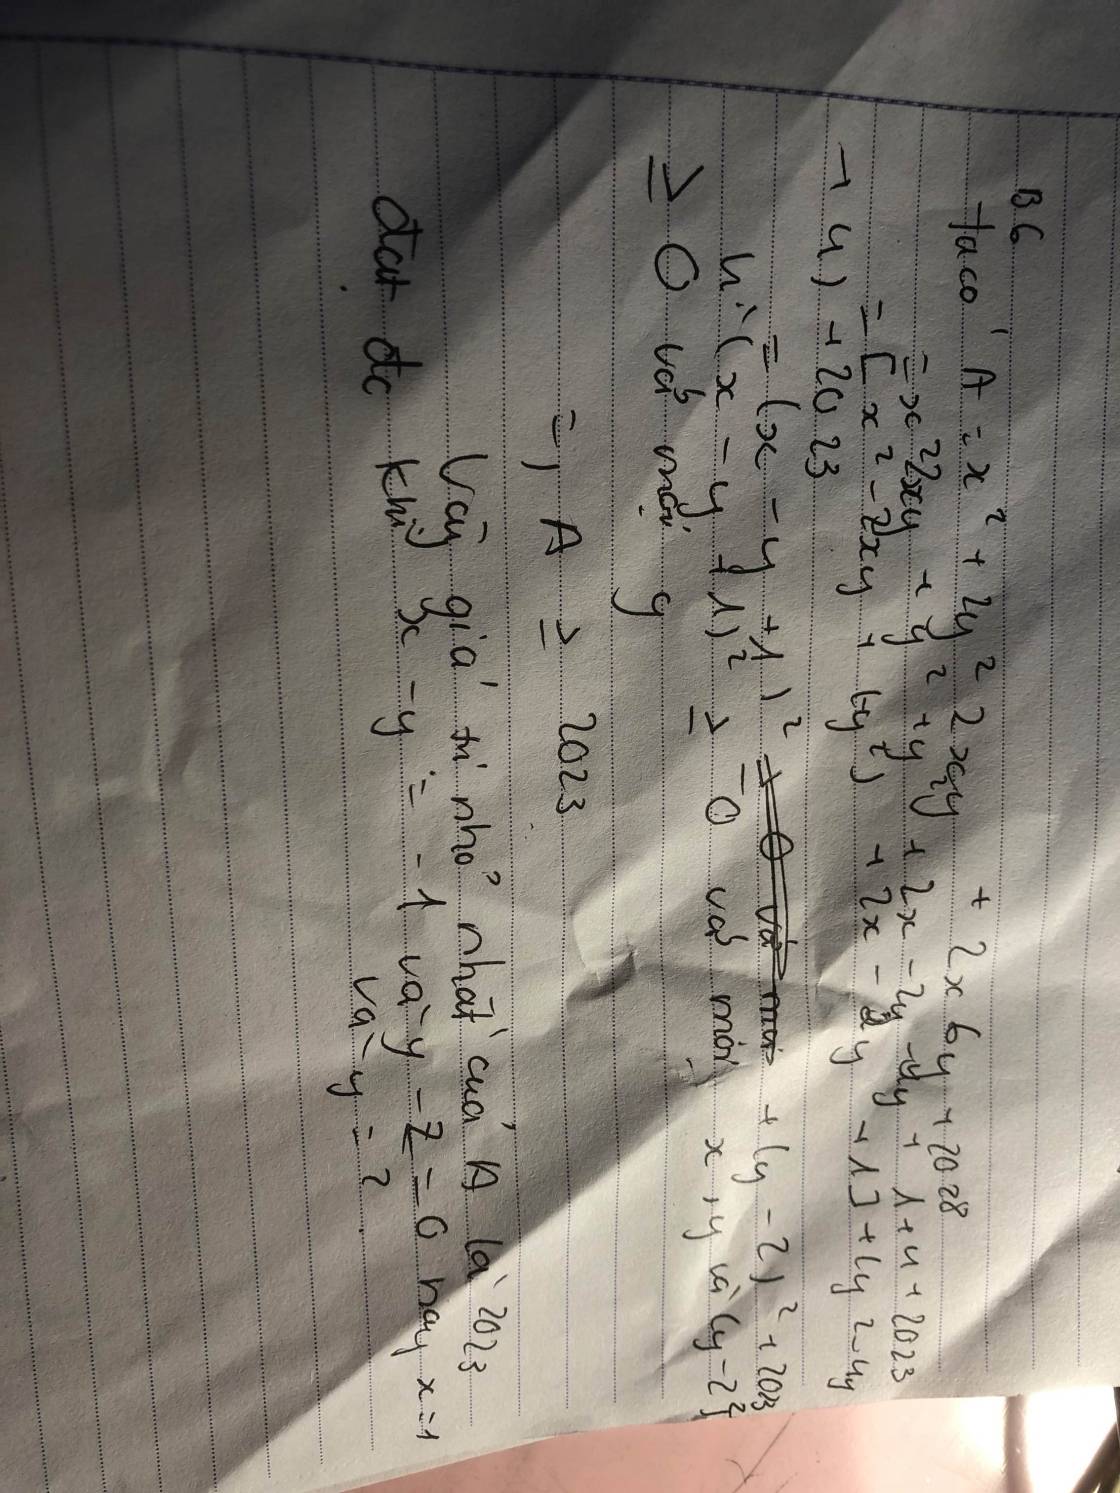 B6
Ta có A = x² + 2y² 2xy + 2x 6y + 2028
= x² 2xy + y² + y² + 2x - 2y - 4y + 1 + 4 + 2023
= [x² - 2xy + (y²) + 2x - 2y + 1] + (y² - 4y
+ 4) + 2023
= (x - y + 1)² + (y - 2)² + 2023
(x - y + 1)² ≥ 0 với mọi x, y và (y - 2)²
≥ 0 với mọi y
=> A ≥ 2023
Vậy giá trị nhỏ nhất của A là 2023
đạt đc khi x - y = -1 và y - 2 = 0 hay x = 1
và y = 2.